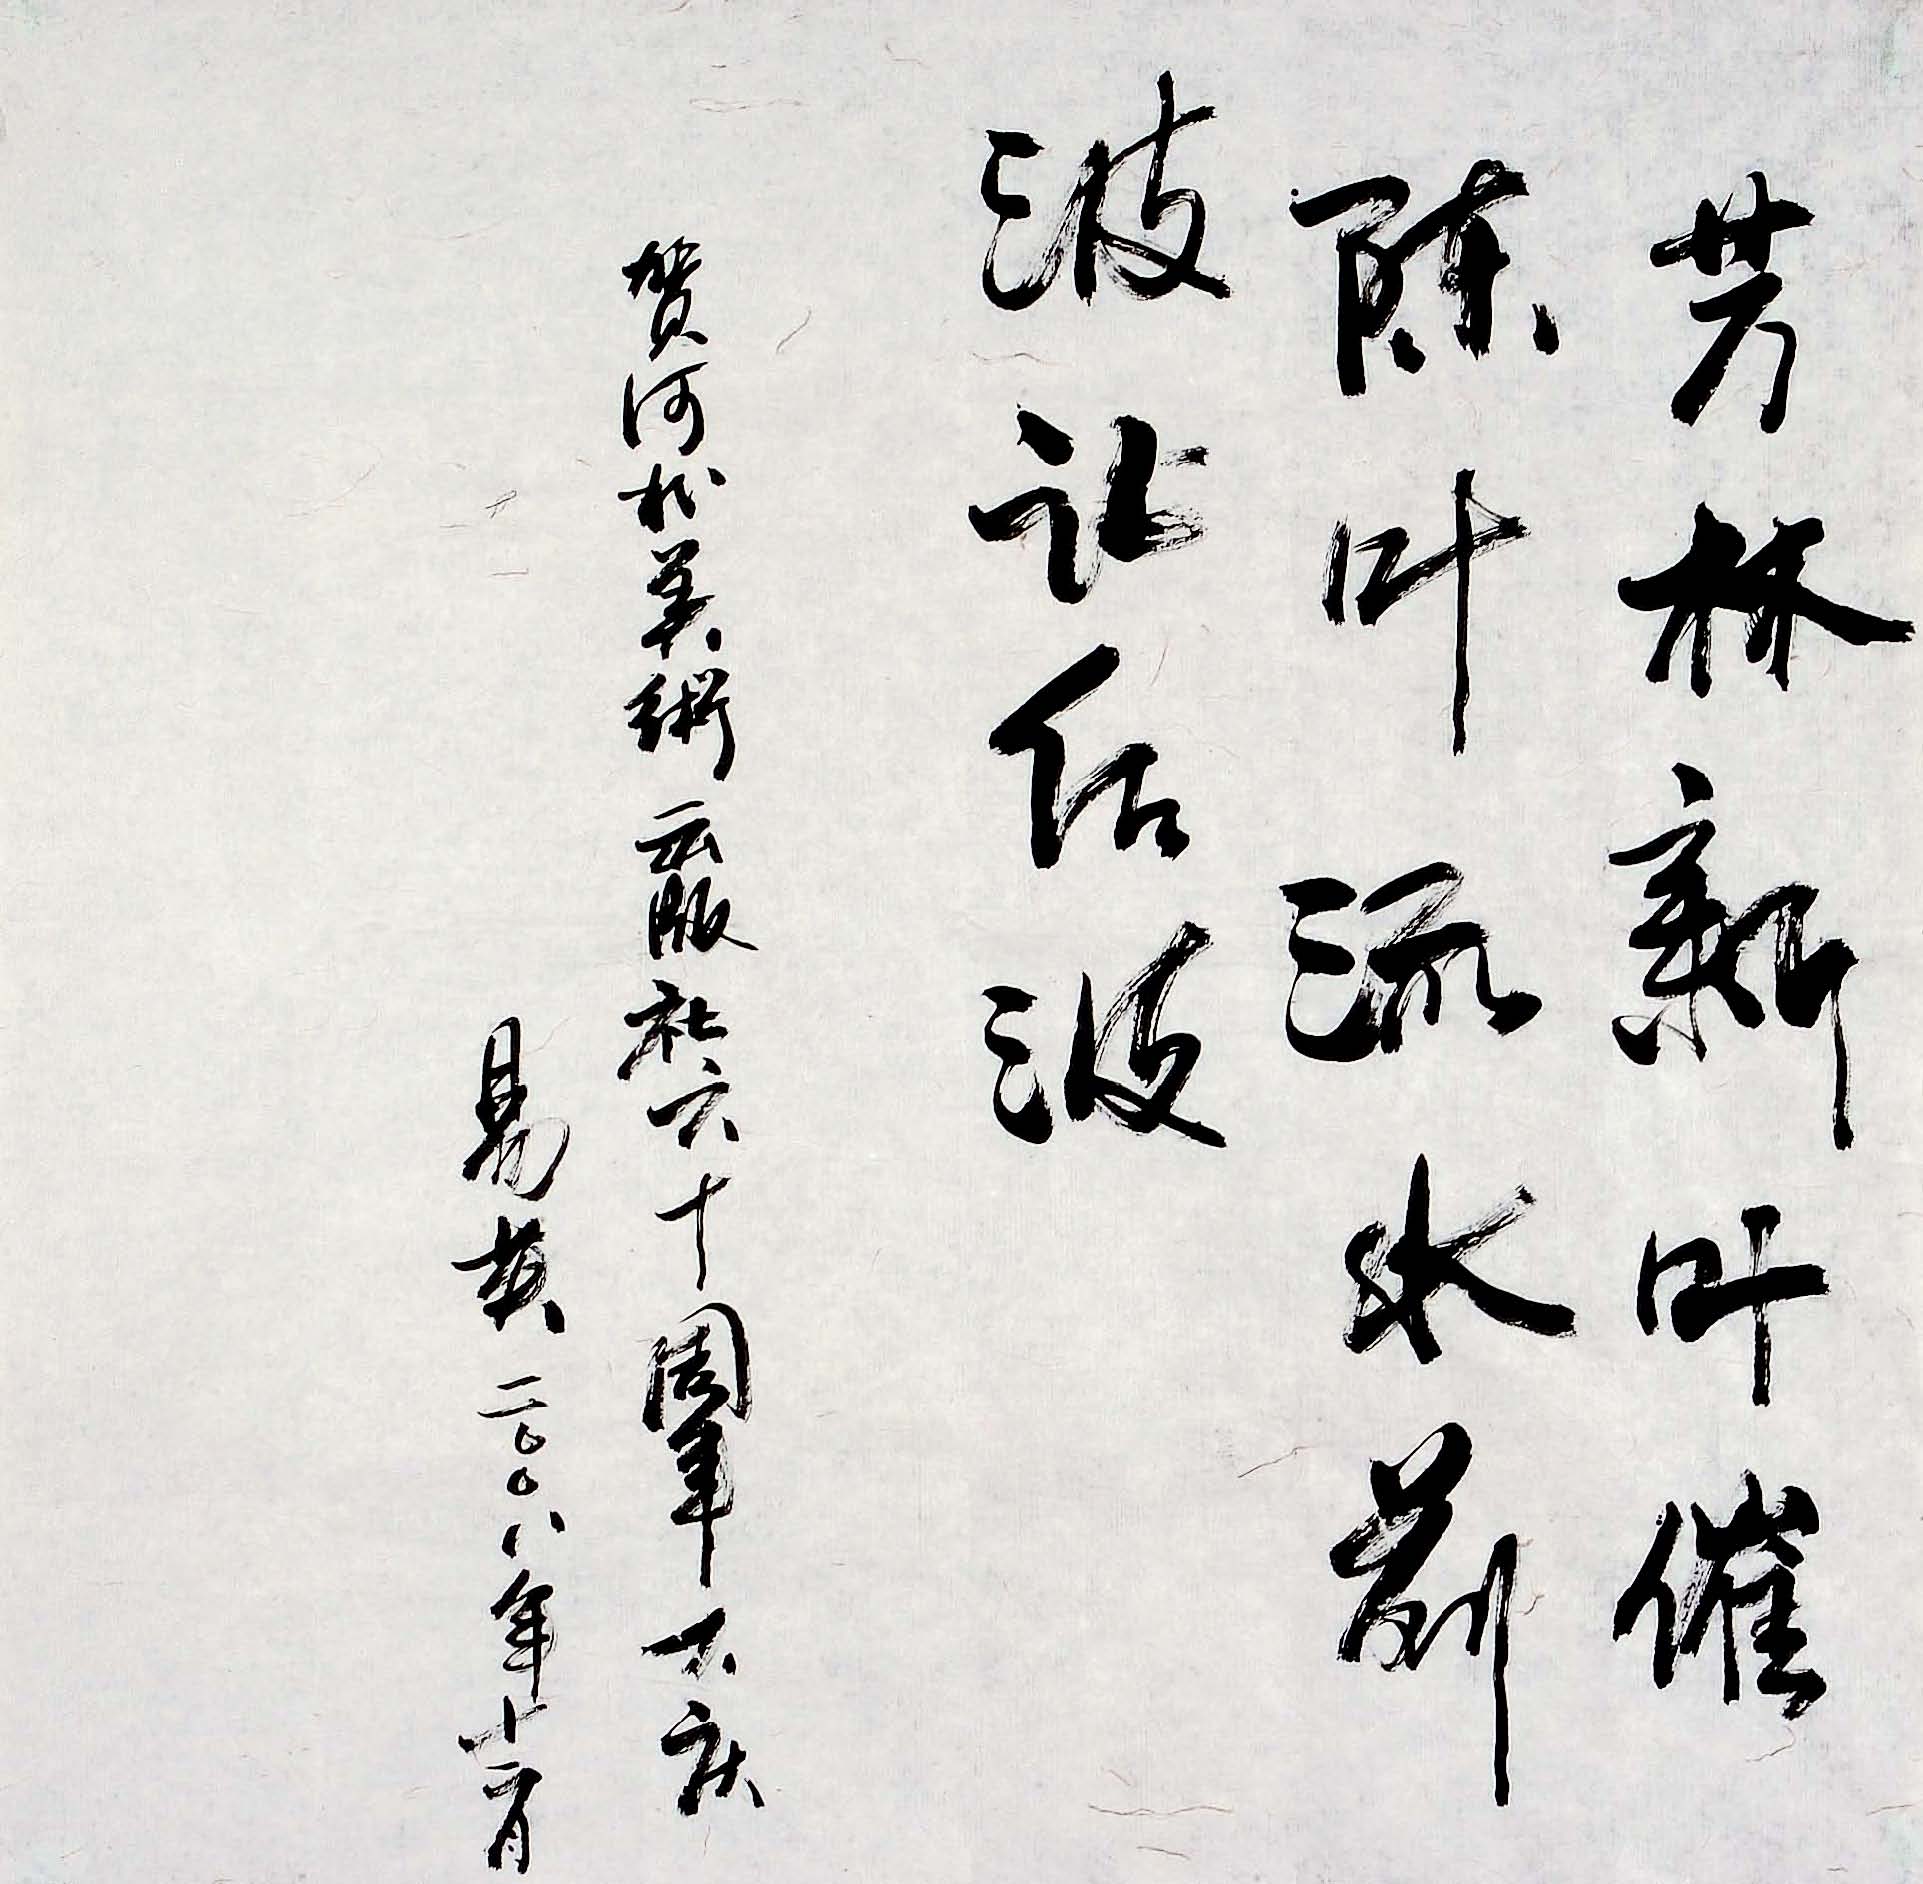 芳林新叶催
陈叶流水前
波让后波
贺河北美術出版社六十周年大庆
易英 二〇〇八年十二月